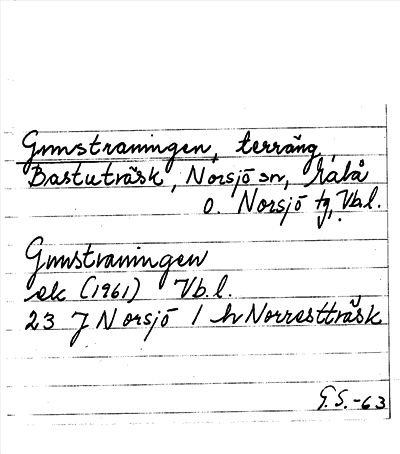 Grmstraningen, terräng
Bastuträsk, Norsjö sn, Malå
o. Norsjö tg, Vb.l.
Grmstraningen
ek (1961) Vb.l.
23 J Norsjö 1 h Norrestträsk
G.S.-63